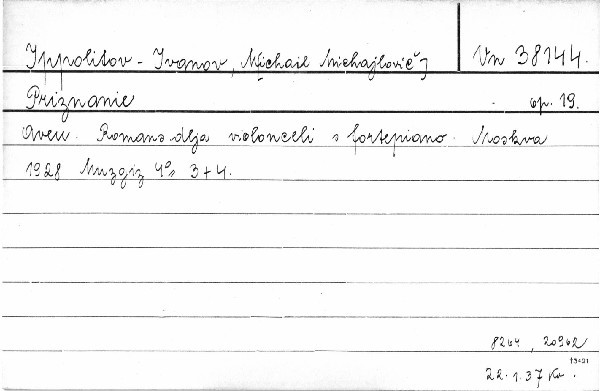 Ippolitov - Ivanov, Michail Michajlovič] Vn 38144.
Priznanie op. 19.
Aveu. Romans dlja violončeli s fortepiano. Moskva
1928 Muzgiz 4° 3+4.
8264, 20962
13421
22.1.37